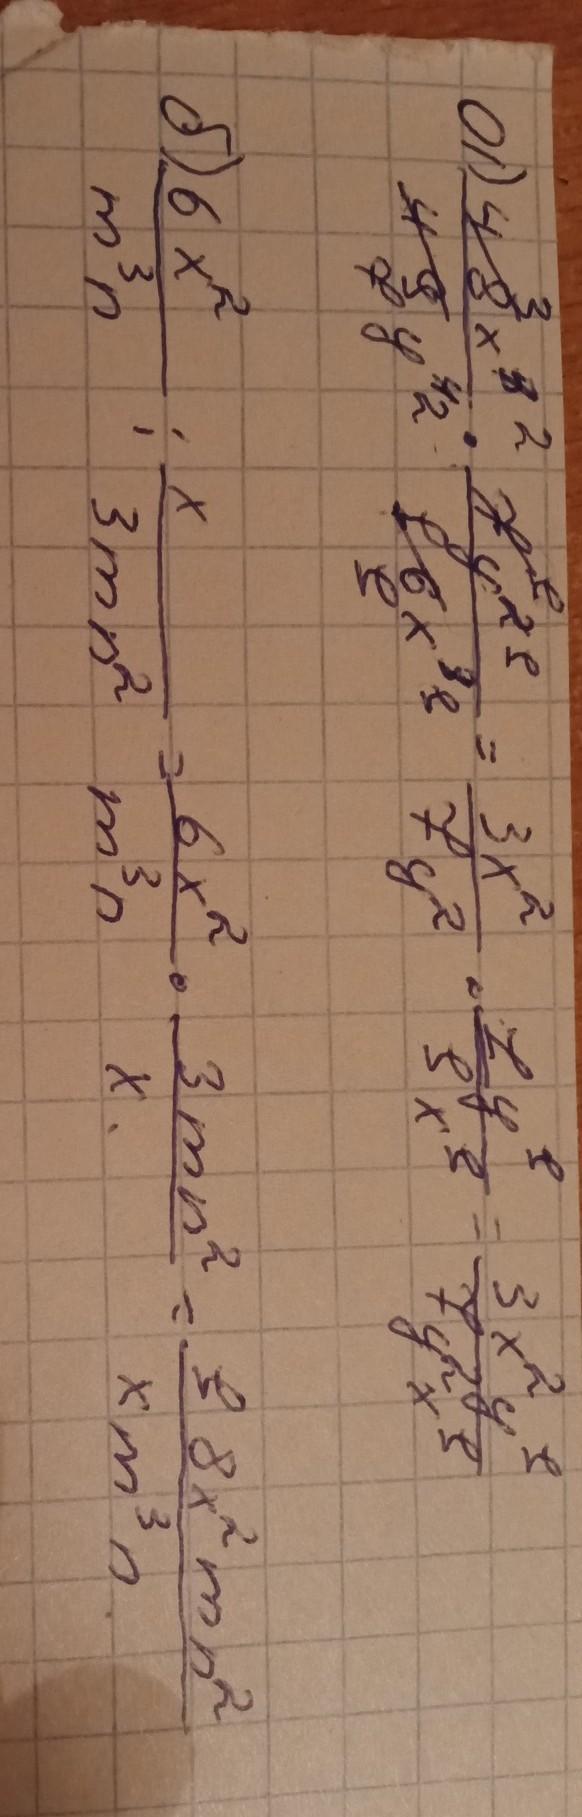 а) 48³x² / 49 7 y⁴² · 7y²¹ / 16 1 x³¹ = 3x² / 7y² · 1y¹ / 1x¹ = 3x²y¹ / 7y²x¹
б) 6x² / m³n : x / 3mn² = 6x² / m³n · 3mn² / x = 18x²mn² / xm³n